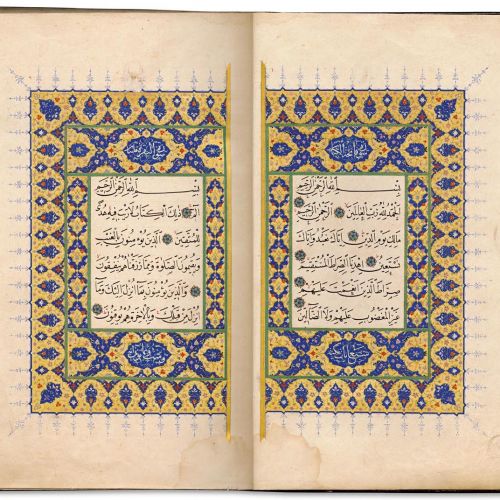 بِسْمِ اللهِ الرَّحْمٰنِ الرَّحِيمِ
اَلْحَمْدُ لِلّٰهِ رَبِّ الْعَالَمِينَ الرَّحْمٰنِ الرَّحِيمِ
مَالِكِ يَوْمِ الدِّينِ اِيَّاكَ نَعْبُدُ وَاِيَّاكَ
نَسْتَعِينُ اِهْدِنَا الصِّرَاطَ الْمُسْتَقِيمَ
صِرَاطَ الَّذِينَ اَنْعَمْتَ عَلَيْهِمْ
غَيْرِ الْمَغْضُوبِ عَلَيْهِمْ وَلَا الضَّالِّينَ
بِسْمِ اللهِ الرَّحْمٰنِ الرَّحِيمِ
الٓمٓ ذٰلِكَ الْكِتَابُ لَا رَيْبَ فِيهِ هُدًى
لِلْمُتَّقِينَ اَلَّذِينَ يُؤْمِنُونَ بِالْغَيْبِ
وَيُقِيمُونَ الصَّلٰوةَ وَمِمَّا رَزَقْنَاهُمْ يُنْفِقُونَ
وَالَّذِينَ يُؤْمِنُونَ بِمَا اُنْزِلَ اِلَيْكَ وَمَا
اُنْزِلَ مِنْ قَبْلِكَ وَبِالْاٰخِرَةِ هُمْ يُوقِنُونَ